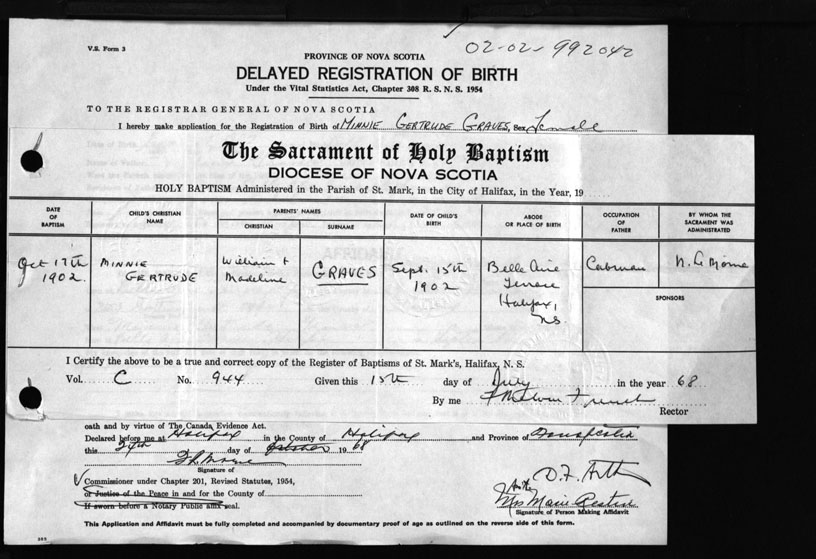 V.S. Form 3
02-02-992042
PROVINCE OF NOVA SCOTIA
DELAYED REGISTRATION OF BIRTH
Under the Vital Statistics Act, Chapter 308 R. S. N. S. 1954
TO THE REGISTRAR GENERAL OF NOVA SCOTIA
I hereby make application for the Registration of Birth of MINNIE GERTRUDE GRAVES, Sex Female
The Sacrament of Holy Baptism
DIOCESE OF NOVA SCOTIA
HOLY BAPTISM Administered in the Parish of St. Mark, in the City of Halifax, in the Year, 19
DATE OF BAPTISM
CHILD'S CHRISTIAN NAME
PARENTS' NAMES
CHRISTIAN
SURNAME
DATE OF CHILD'S BIRTH
ABODE OR PLACE OF BIRTH
OCCUPATION OF FATHER
BY WHOM THE SACRAMENT WAS ADMINISTERED
Oct 17th 1902.
MINNIE GERTRUDE
William & Madeline
GRAVES
Sept. 15th 1902
Belle Aire Terrace Halifax, NS
Cabman
N. Le Moine
SPONSORS
I Certify the above to be a true and correct copy of the Register of Baptisms of St. Mark's, Halifax, N. S.
Vol. C No. 944 Given this 15th day of July in the year 68
By me
Rector
oath and by virtue of The Canada Evidence Act.
Declared before me at Halifax in the County of Halifax and Province of Nova Scotia
this day of October 1968
Signature of
Commissioner under Chapter 201, Revised Statutes, 1954,
or Justice of the Peace in and for the County of
If sworn before a Notary Public affix seal.
Mrs Marie
Signature of Person Making Affidavit
This Application and Affidavit must be fully completed and accompanied by documentary proof of age as outlined on the reverse side of this form.